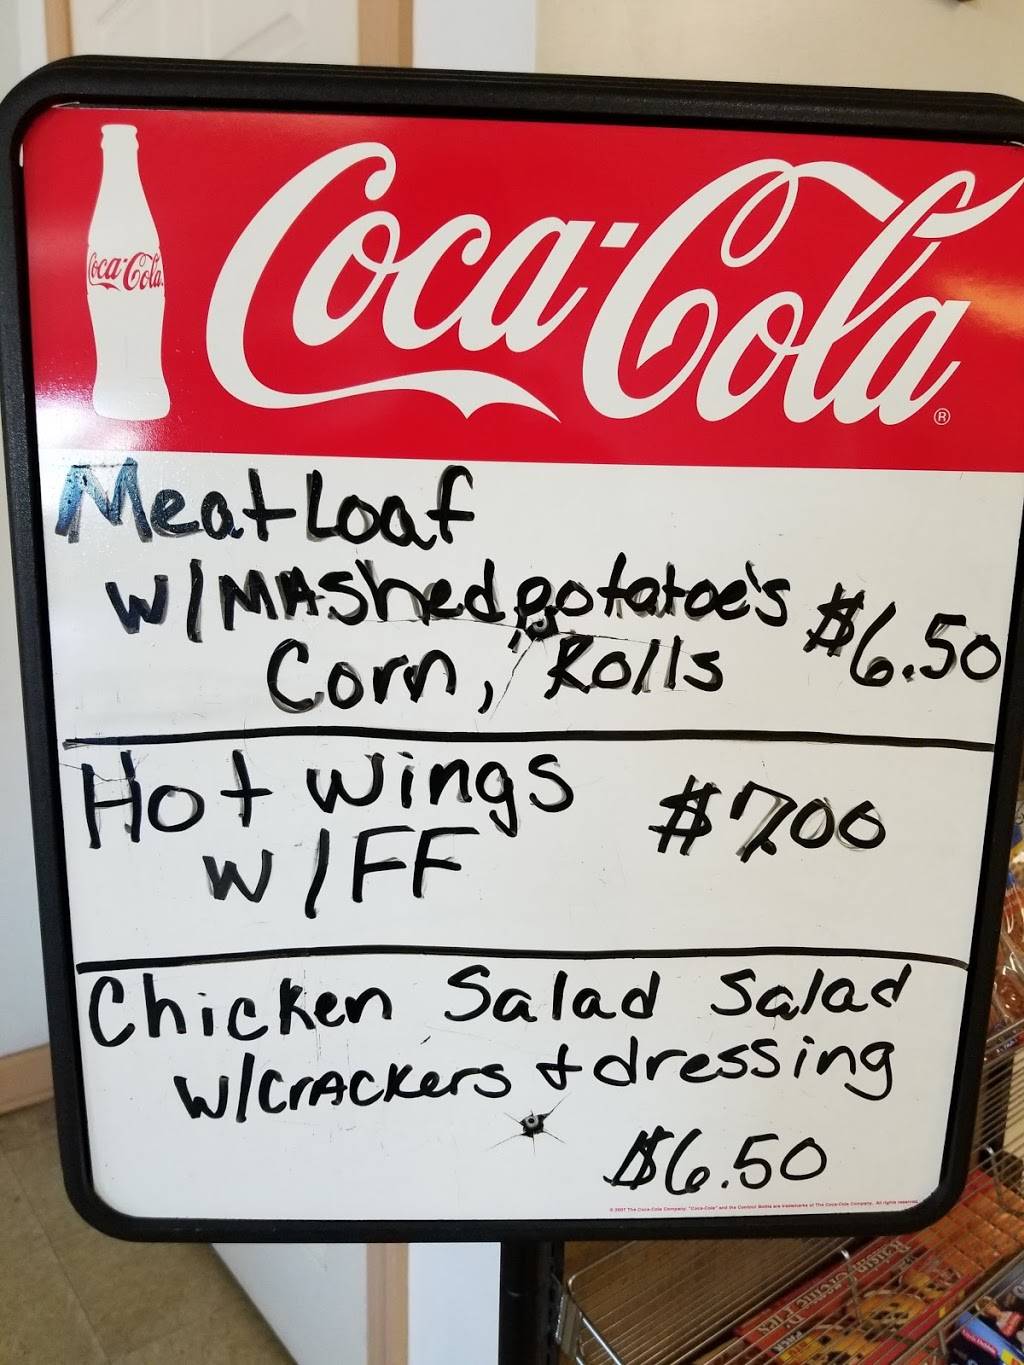 Coca-Cola
Coca-Cola®
Meat Loaf
W/MAShed potatoe's $6.50
Corn, Rolls
Hot Wings $7.00
W/FF
Chicken Salad Salad
W/CrACKers + dressing
$6.50
© 2007 The Coca-Cola Company. "Coca-Cola" and the Contour Bottle are trademarks of The Coca-Cola Company. All rights reserved.
Raisin Creme Pies